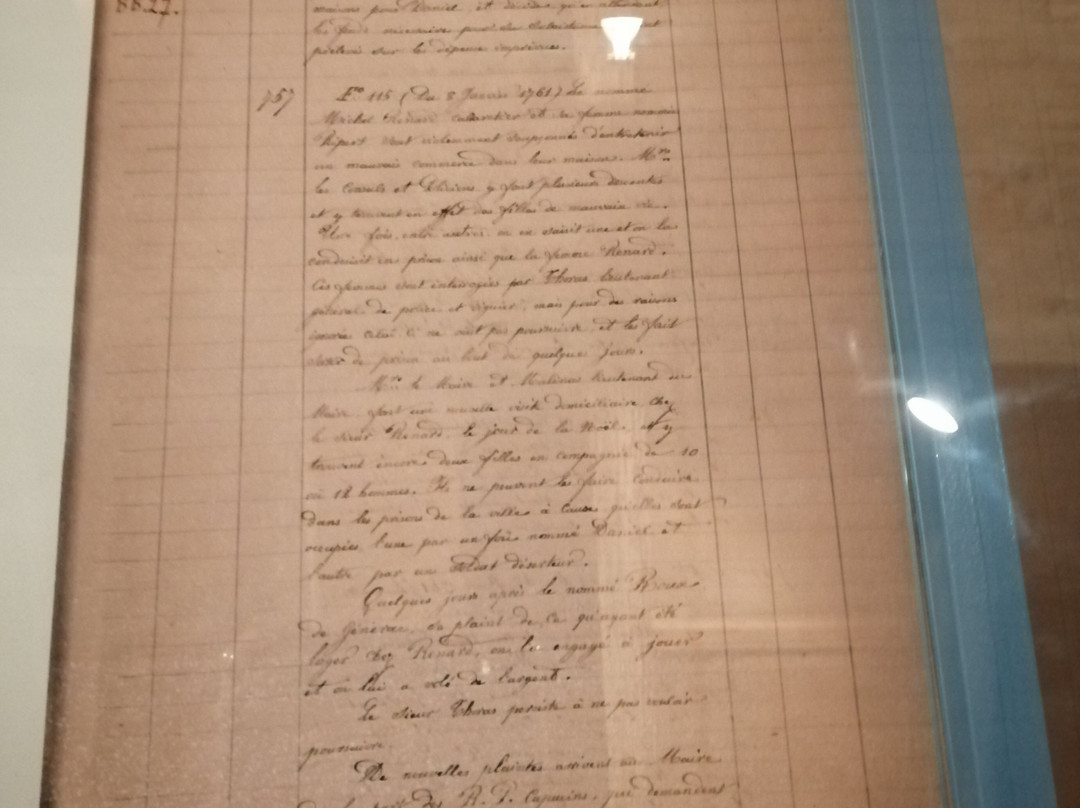 BB.22.
maisons pour Daniel, et décident qu'en attendant
les fonds nécessaires pour
prélevés sur les dépenses imprévues.
757
Fo. 115 (Du 8 Janvier 1761) Le nommé
Michel Renard cabaretier et sa femme nommée
Ripert sont violemment soupçonnés d'entretenir
un mauvais commerce dans leur maison. Mrs
les Consuls et y font plusieurs descentes
et y trouvent en effet des filles de mauvaise vie.
Une fois, entre autres, on en saisit une et on la
conduisit en prison ainsi que la femme Renard.
Ces femmes sont interrogées par Thoras lieutenant
général de police et viguier, mais pour des raisons
ignorées celui-ci ne veut pas poursuivre et les fait
sortir de prison au bout de quelques jours.
Mrs le Maire et lieutenant de
Maire font une nouvelle visite domiciliaire chez
le sieur Renard, le jour de la Noël, et y
trouvent encore deux filles en compagnie de 10
ou 12 hommes. Ils ne peuvent les faire conduire
dans les prisons de la ville à cause qu'elles sont
occupées, l'une par un fou nommé Daniel et
l'autre par un soldat déserteur.
Quelques jours après le nommé
de Générac, se plaint de ce qu'ayant été
loger chez Renard, on l'a engagé à jouer
et on lui a volé de l'argent.
Le sieur Thoras persiste à ne pas vouloir
poursuivre.
De nouvelles plaintes arrivent au Maire
de la part des R. P. Capucins, qui demandent